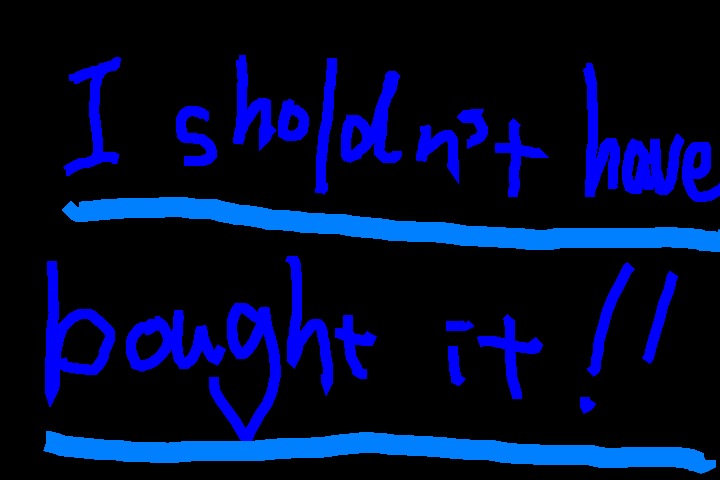 I sholdn't have
bought it!!